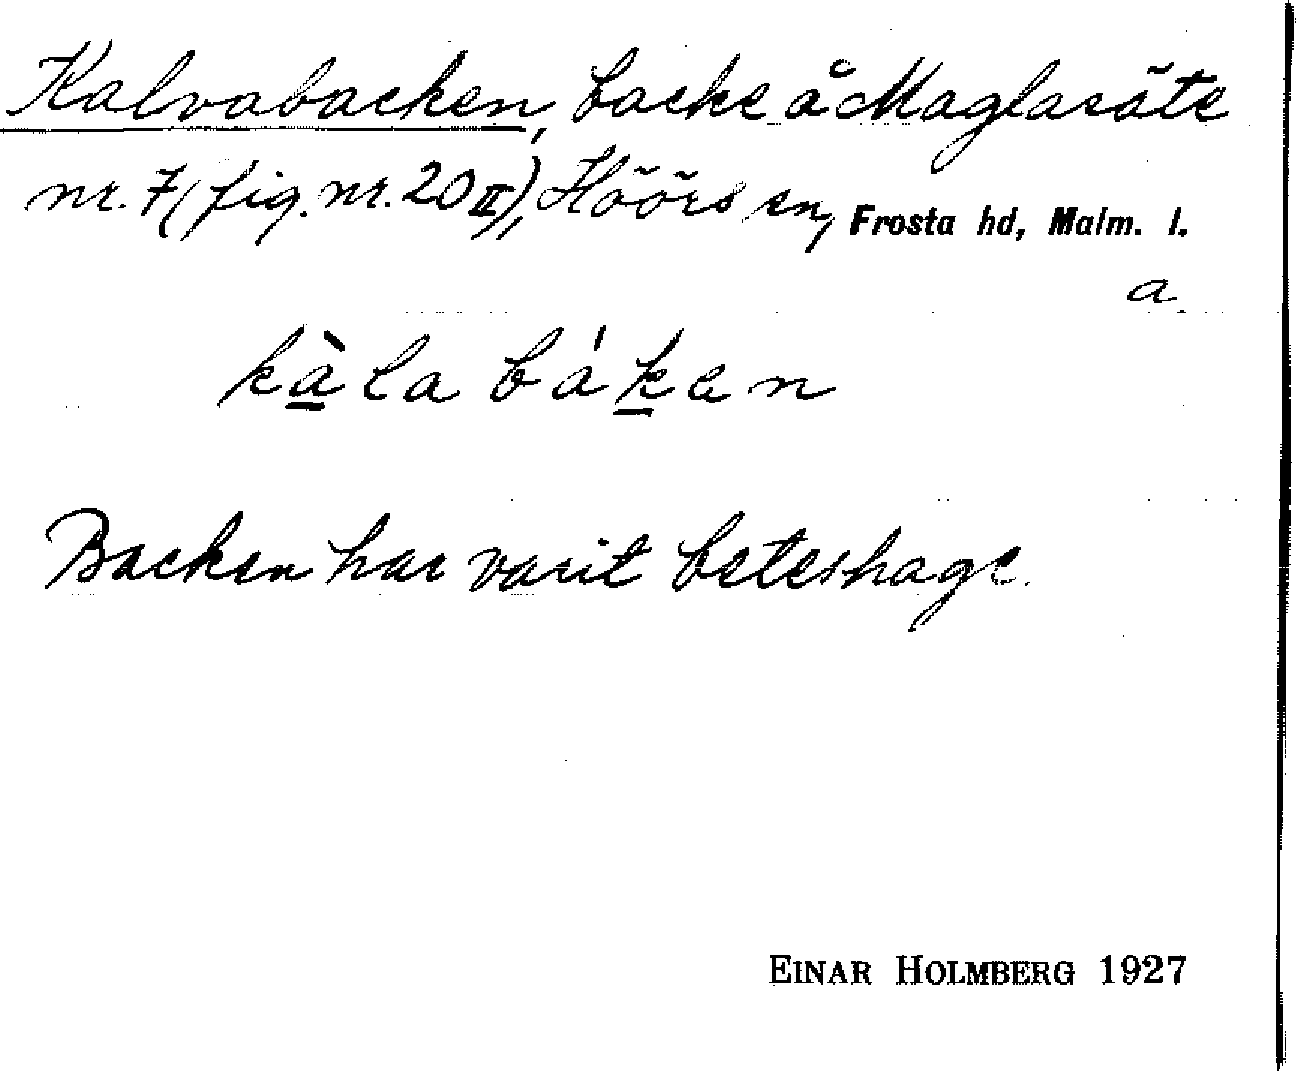 Kalvabacken, backe å Maglasäte
nr. 7 (fig. nr. 20 II), Höörs sn, Frosta hd, Malm. l.
a.
kàla báken
Backen har varit beteshage.
EINAR HOLMBERG 1927